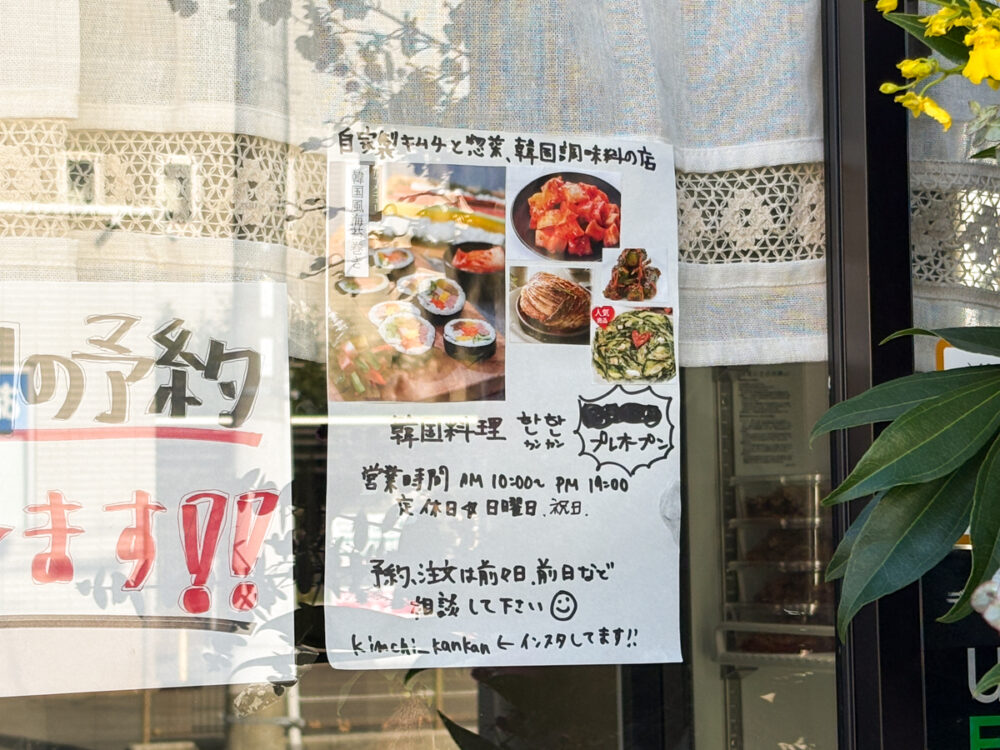 の予約
ます!!
自家製キムチと惣菜、韓国調味料の店
韓国風海苔巻き
人気
商品
韓国料理 한한
カンカン
プレオープン
営業時間 AM 10:00~ PM 19:00
定休日 日曜日、祝日.
予約、注文は前々日、前日など
相談して下さい
kimchi_kankan ← インスタしてます!!